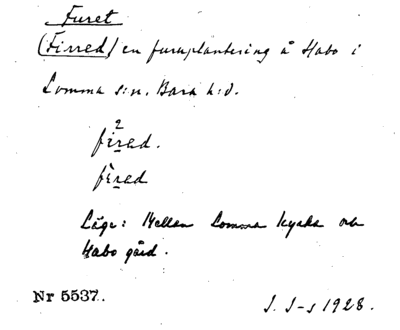 Furet
(Firred) en furuplantering å Habo i
Lomma s:n. Bara h:d.
2
fired.
fired
Läge: Mellan Lomma kyrka och
Habo gård.
Nr 5537.
J. J-s 1928.